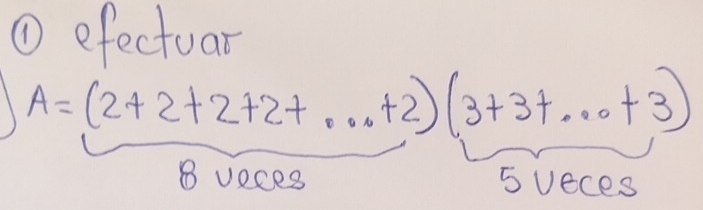 ① efectuar
A=(2+2+2+2+...+2)(3+3+...+3)
8 veces 5 veces